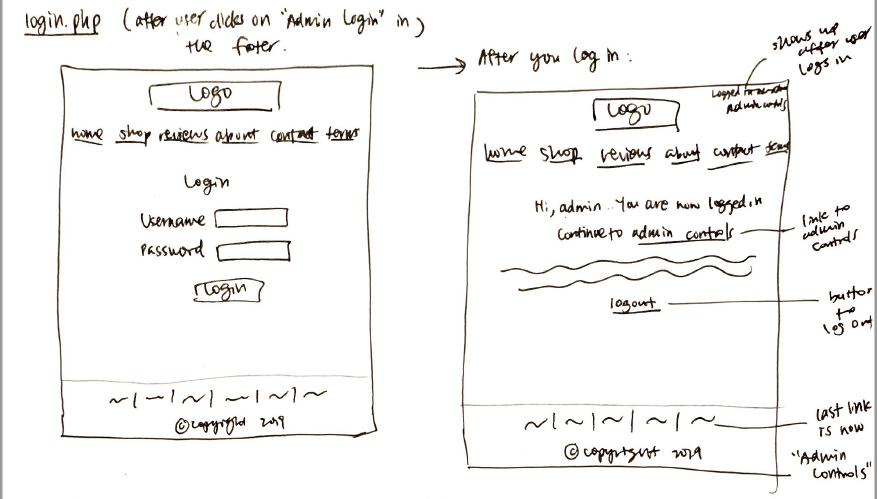 login.php (after user clicks on "Admin Login" in the footer.)
Logo
home shop reviews about contact terms
Login
Username
Password
Login
©copyright 2019
After you log in:
shows up
after user
logs in
Logged in
admin controls
Logo
home shop reviews about contact terms
Hi, admin. You are now logged in
Continue to admin controls
link to
admin
controls
logout
button
to
log out
last link
is now
"Admin
Controls"
©copyright 2019